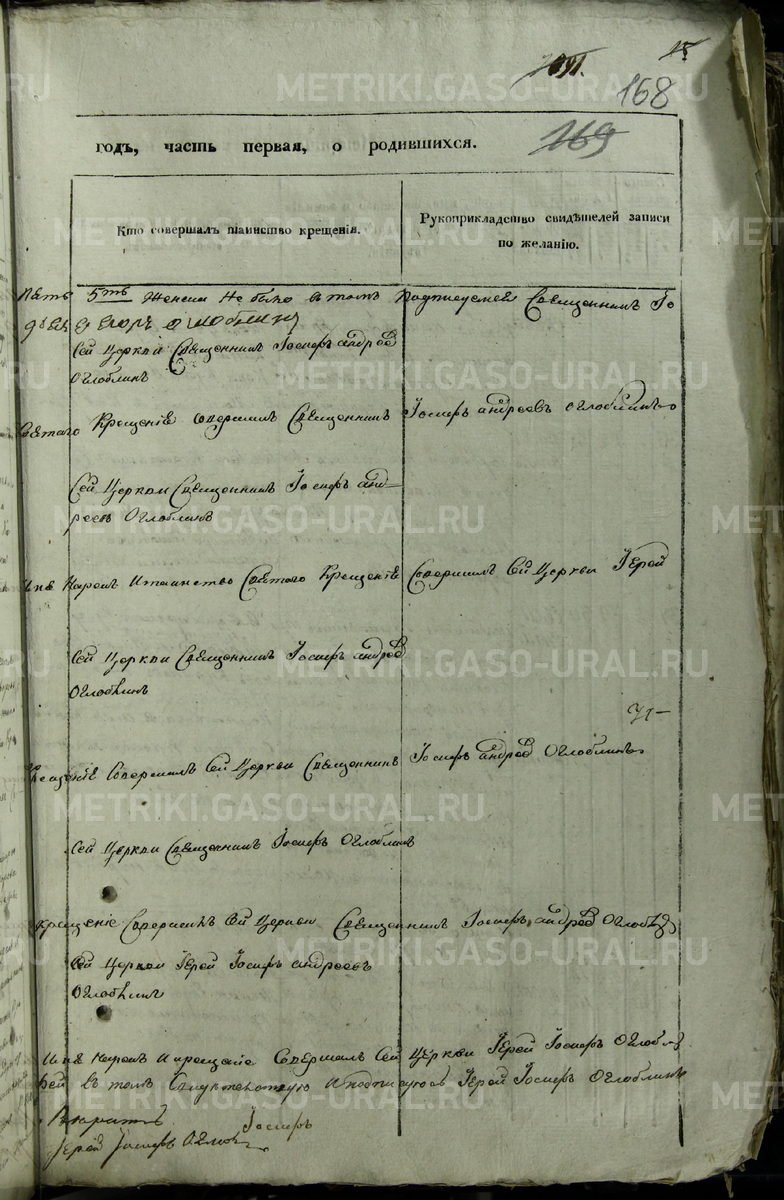 168
169
годъ, часть первая, о родившихся.
Кто совершалъ таинство крещенія.
Рукоприкладство свидѣтелей записи
по желанію.
Пять 5ть Женска Не было въ томъ Подписуемся Священникъ Іо
Сей Церкви Священникъ Іосифъ андреев
Оглоблинъ
Святаго Крещеніе совершилъ Священникъ Іосифъ андреевъ оглоблинъ
Сей Церкви Священникъ Іосифъ анд-
реевъ Оглоблинъ
Имя Нарекъ И таинство Святаго Крещеніе Совершилъ Сей Церкви Іерей
Сей Церкви Священникъ Іосифъ андреев
Оглоблинъ
Крещеніе Совершалъ Сей Церкви Священникъ Іосифъ андреев Оглоблинъ
Сей Церкви Священникъ Іосифъ Оглоблинъ
Крещеніе Совершилъ Сей Церкви Священникъ Іосифъ андреев
Сей Церкви Іерей Іосифъ андреевъ
Оглоблинъ
Имя Нарекъ И крещеніе Совершалъ Сей Церкви Іерей Іосифъ
въ томъ Свидетельствую И подписуюсь Іерей Іосифъ Оглоблинъ
Іосифъ
Іерей Іосифъ
METRIKI.GASO-URAL.RU